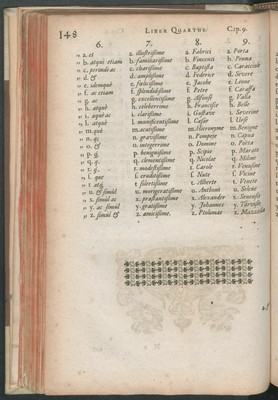 148 LIBER QUARTUS. CAP. 9.
6. 7. 8. 9.
a. et a. illustrissime a. Fabrici a. Porta
b. atqui etiam b. familiarissime b. Vincenti b. Penna
c. perinde ac c. charissime c. Baptista c. Caracciole
d. & d. amplissime d. Federice d. Severe
e. idemque e. felicissime e. Jacobe e. Leone
f. ac etiam f. splendidissime f. Petre f. Caraffa
g. ac g. excellentissime g. Alfonse g. Valla
h. atque h. celeberrime h. Francisce h. Belle
i. atque ac i. clarissime i. Gustave i. Severine
l. atque l. munificentissime l. Cæsar l. Ursi
m. que m. acutissime m. Hieronyme m. Benigne
n. gravissime n. Pompee n. Capua
o. & o. integerrime o. Domine o. Porta
p. benignissime p. Scipio p. Marate
q. clementissime q. Nicolae q. Milone
r. modestissime r. Carole r. Venusine
f. que f. eruditissime f. Nute f. Vicine
t. atq; t. solertissime t. Alberte t. Fronte
u. & simul u. morigeratissime u. Anthoni u. Selene
x. ac simul x. præstantissime x. Alexander x. Senensis
y. ac simul y. gratissime y. Johannes
z. simul & z. amicissime. z. Ptolomæe z. Mazzella